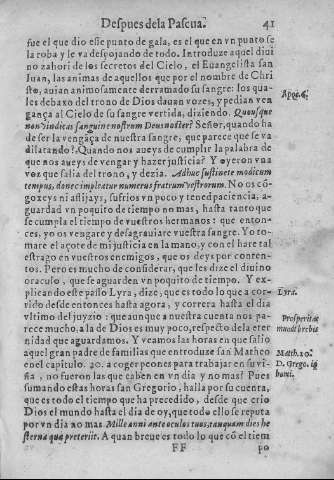 Despues dela Pascua. 41
fue el que dio este punto de gala, es el que en vn punto se
la roba y le va despojando de todo. Introduze aquel diui
no zahori de los secretos del Cielo, el Euangelista san
Iuan, las animas de aquellos que por el nombre de Chri
sto, auian animosamente derramado su sangre: los qua-
les debaxo del trono de Dios dauan vozes, y pedian ven
gança al Cielo de su sangre vertida, diziendo. Quousque
non vindicas sanguinē nostrum Deus noster? Señor, quando ha
de ser la vengāça de nuestra sangre, que parece que se va
dilatando? Quando nos aueys de cumplir la palabra de
que nos aueys de vengar y hazer justicia? Y oyeron vna
voz que salia del trono, y dezia. Adhuc sustinete modicum
tempus, donec impleatur numerus fratrum vestrorum. No os cō-
goxeys ni aflijays, sufrios vn poco y tened paciencia, a-
guardad vn poquito de tiempo no mas, hasta tanto que
se cumpla el tiempo de vuestros hermanos: que enton-
ces, yo os vengare y desagrauiare vuestra sangre. Yo to-
mare el açote de mi justicia en la mano, y con el hare tal
estrago en vuestros enemigos, que os deys por conten-
tos. Pero es mucho de considerar, que les dize el diuino
oraculo, que se aguarden vn poquito de tiempo. Y ex-
plicando este passo Lyra, dize, que es todo lo que a cor-
rido desde entonces hasta agora, y correra hasta el dia
vltimo del juyzio: que aunque a nuestra cuenta nos pa-
rece mucho, a la de Dios es muy poco, respecto dela eter
nidad que aguardamos. Y veamos las horas en que salio
aquel gran padre de familias que introduze san Matheo
en el capitulo. 20. a coger peones para trabajar en su vi-
ña, no fueron las que caben en vn dia y no mas? Pues
sumando estas horas san Gregorio, halla por su cuenta,
que es todo el tiempo que ha precedido, desde que crio
Dios el mundo hasta el dia de oy, que todo ello se reputa
por vn dia no mas. Mille anni ante oculos tuos, tanquam dies he
sterna quæ preteriit. A quan breue es todo lo que cō el tiem
FF po
Apoc. 6.
Lyra.
Prosperitas
mundi brebis
Matth. 20.
D. Grego. in
homi.